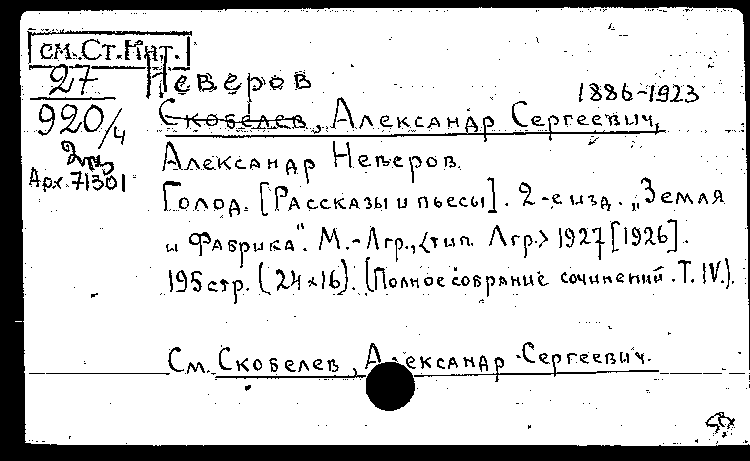 см. Ст. Инт.
27
920/4
2 экз
Арх. 71301
Неверов
1886-1923
Скобелев, Александр Сергеевич,
Александр Неверов.
Голод. [Рассказы и пьесы]. 2-е изд. „Земля
и Фабрика". М.-Лгр., <тип. Лгр.> 1927 [1926].
195 стр. (24×16). (Полное собрание сочинений. Т. IV.).
См. Скобелев, Александр Сергеевич.